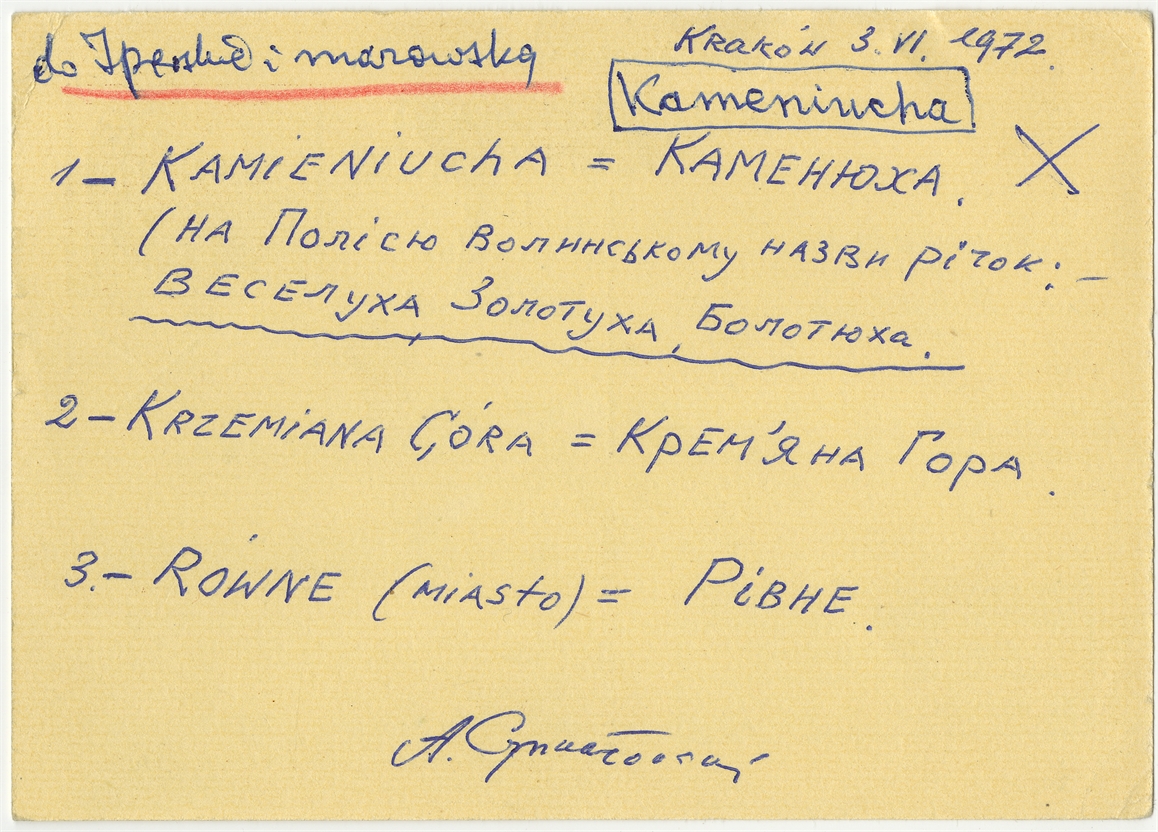 do i marowską
Kraków 3. VI. 1972.
Kameniucha
1- KAMIENIUCHA = КАМЕНЮХА.
(НА Полісю Волинському назви річок: -
ВЕСЕЛУХА, Золотуха, Болотюха.
2- KRZEMIANA GÓRA = Крем'яна Гора.
3.- RÓWNE (miasto) = Рівне.
А.